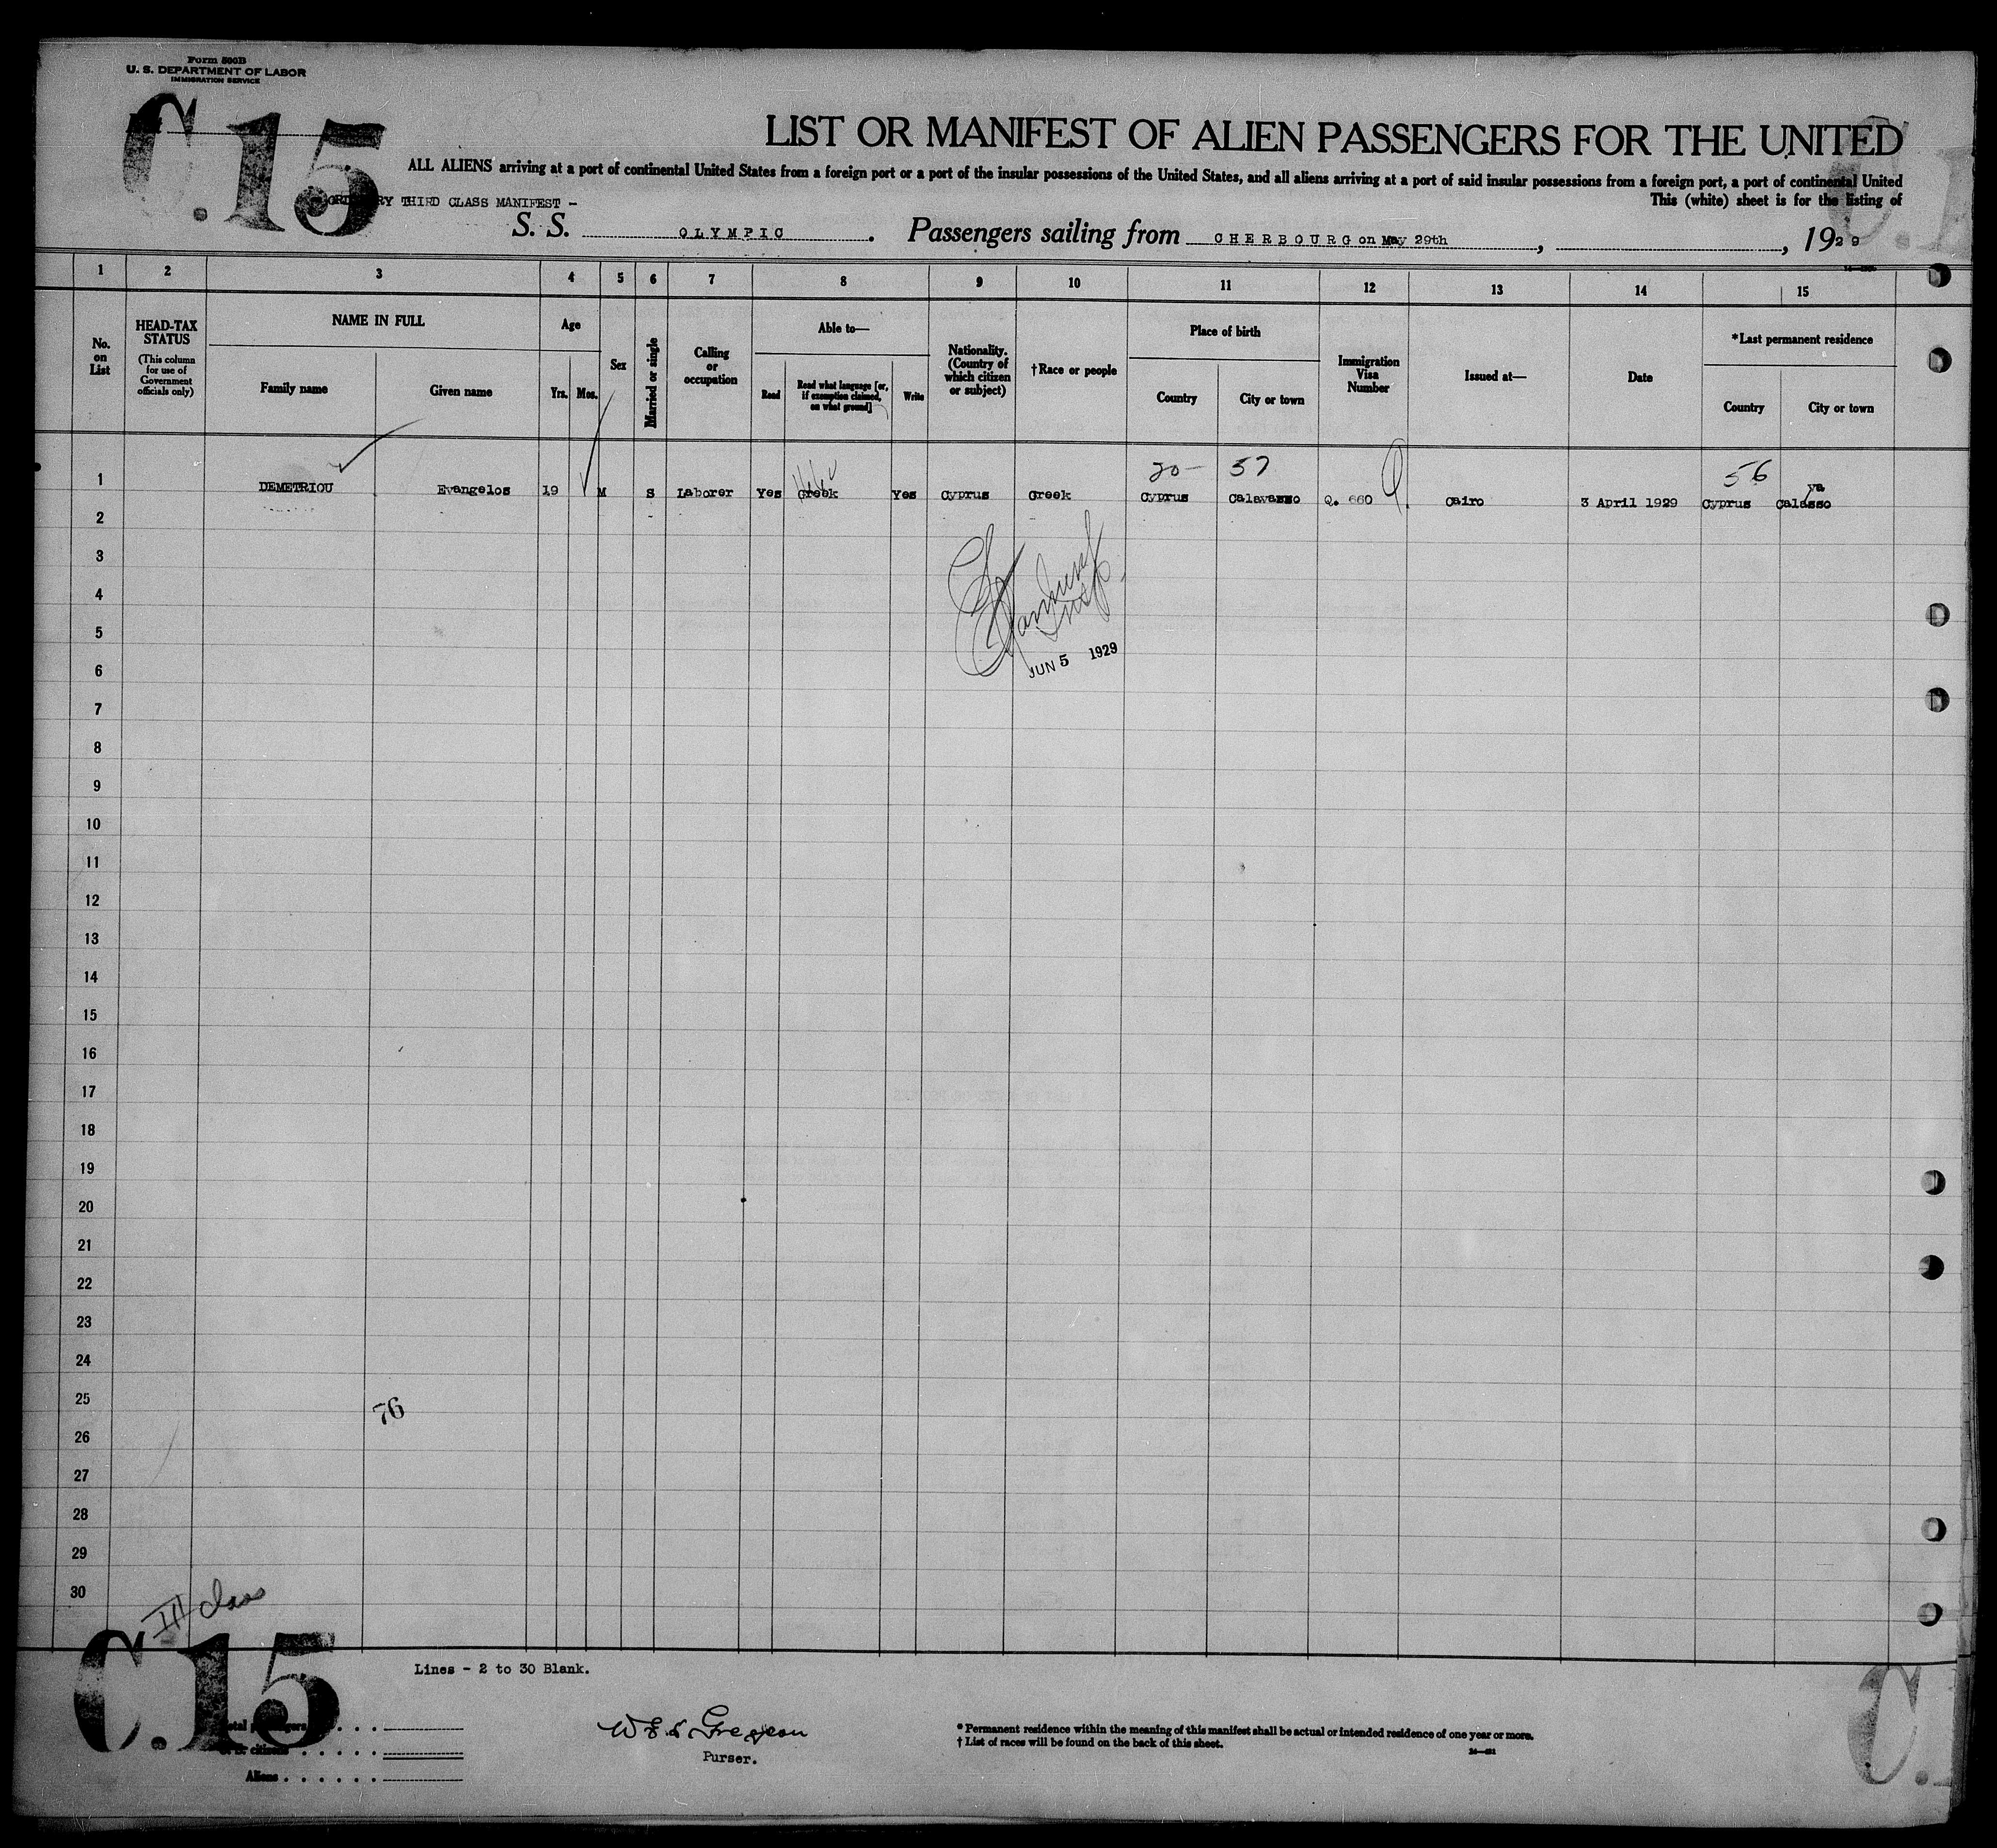 Form 500B
U. S. DEPARTMENT OF LABOR
IMMIGRATION SERVICE
C.15
LIST OR MANIFEST OF ALIEN PASSENGERS FOR THE UNITED
ALL ALIENS arriving at a port of continental United States from a foreign port or a port of the insular possessions of the United States, and all aliens arriving at a port of said insular possessions from a foreign port, a port of continental United
THIRD CLASS MANIFEST -
This (white) sheet is for the listing of
S. S. OLYMPIC. Passengers sailing from CHERBOURG on May 29th, , 1929
1 2 3 4 5 6 7 8 9 10 11 12 13 14 15
No. on List
HEAD-TAX STATUS
(This column for use of Government officials only)
NAME IN FULL
Family name
Given name
Age
Yrs.
Mos.
Sex
Married or single
Calling or occupation
Able to—
Read
Read what language [or, if exemption claimed, on what ground]
Write
Nationality. (Country of which citizen or subject)
†Race or people
Place of birth
Country
City or town
Immigration Visa Number
Issued at—
Date
*Last permanent residence
Country
City or town
20- 57 56
va
1 DEMETRIOU Evangelos 19 M S Laborer Yes Greek Yes Cyprus Greek Cyprus Calavasso Q. 660 Cairo 3 April 1929 Cyprus Calasso
2
3
4
5
Insp.
JUN 5 1929
6
7
8
9
10
11
12
13
14
15
16
17
18
19
20
21
22
23
24
25
76
26
27
28
29
30
III class
C.15
Lines - 2 to 30 Blank.
Total passengers
U. S. citizens
Aliens
Purser.
* Permanent residence within the meaning of this manifest shall be actual or intended residence of one year or more.
† List of races will be found on the back of this sheet.